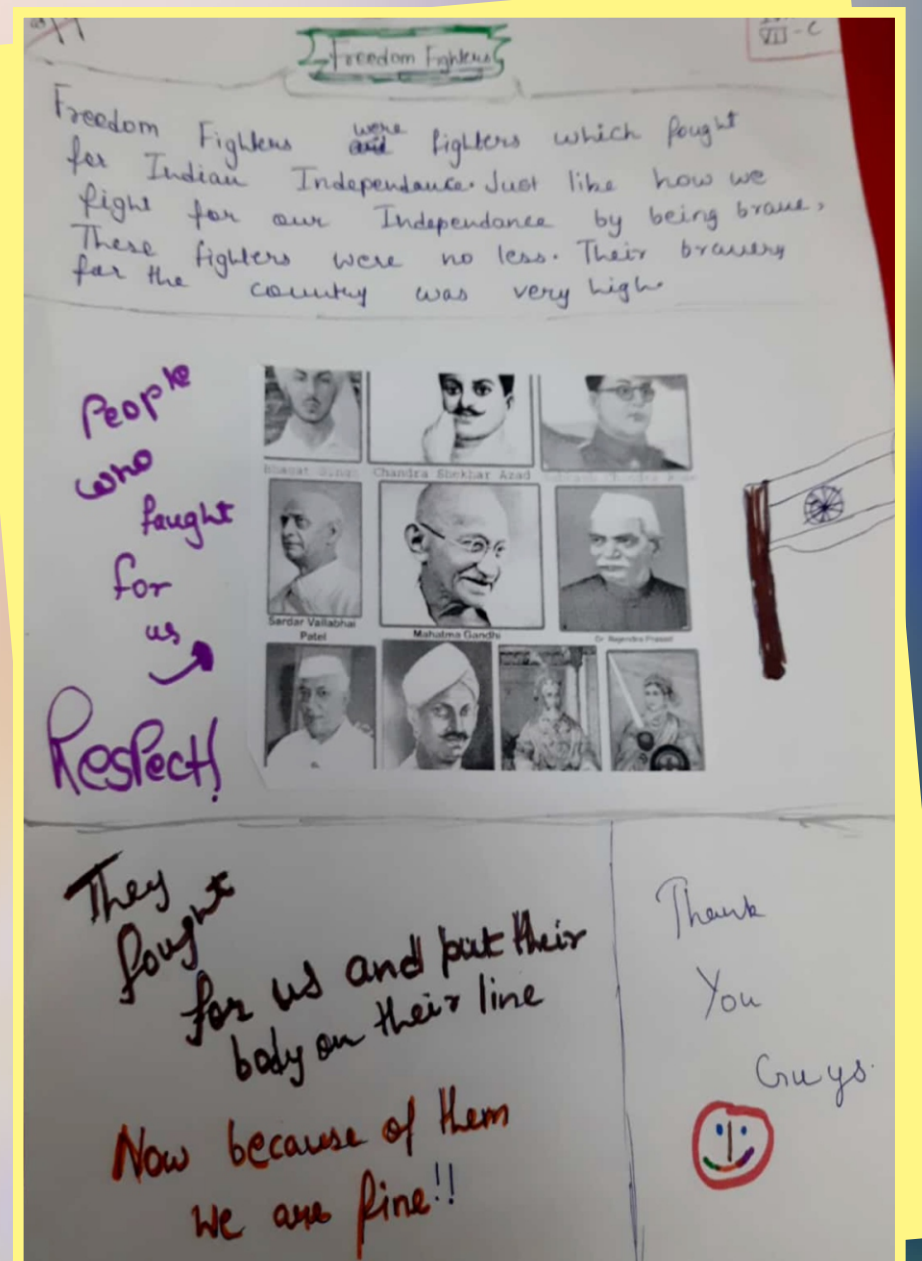 Freedom Fighters
VII - C
Freedom Fighters were fighters which fought
for Indian Independance. Just like how we
fight for our Independance by being brave,
These fighters were no less. Their bravery
for the country was very high
People
who
faught
for
us
Respect!
Bhagat Singh Chandra Shekhar Azad Subhash Chandra Bose
Sardar Vallabhai
Patel
Mahatma Gandhi
Dr. Rajendra Prasad
They
fought
for us and put their
body on their line
Now because of them
we are fine!!
Thank
You
Guys.